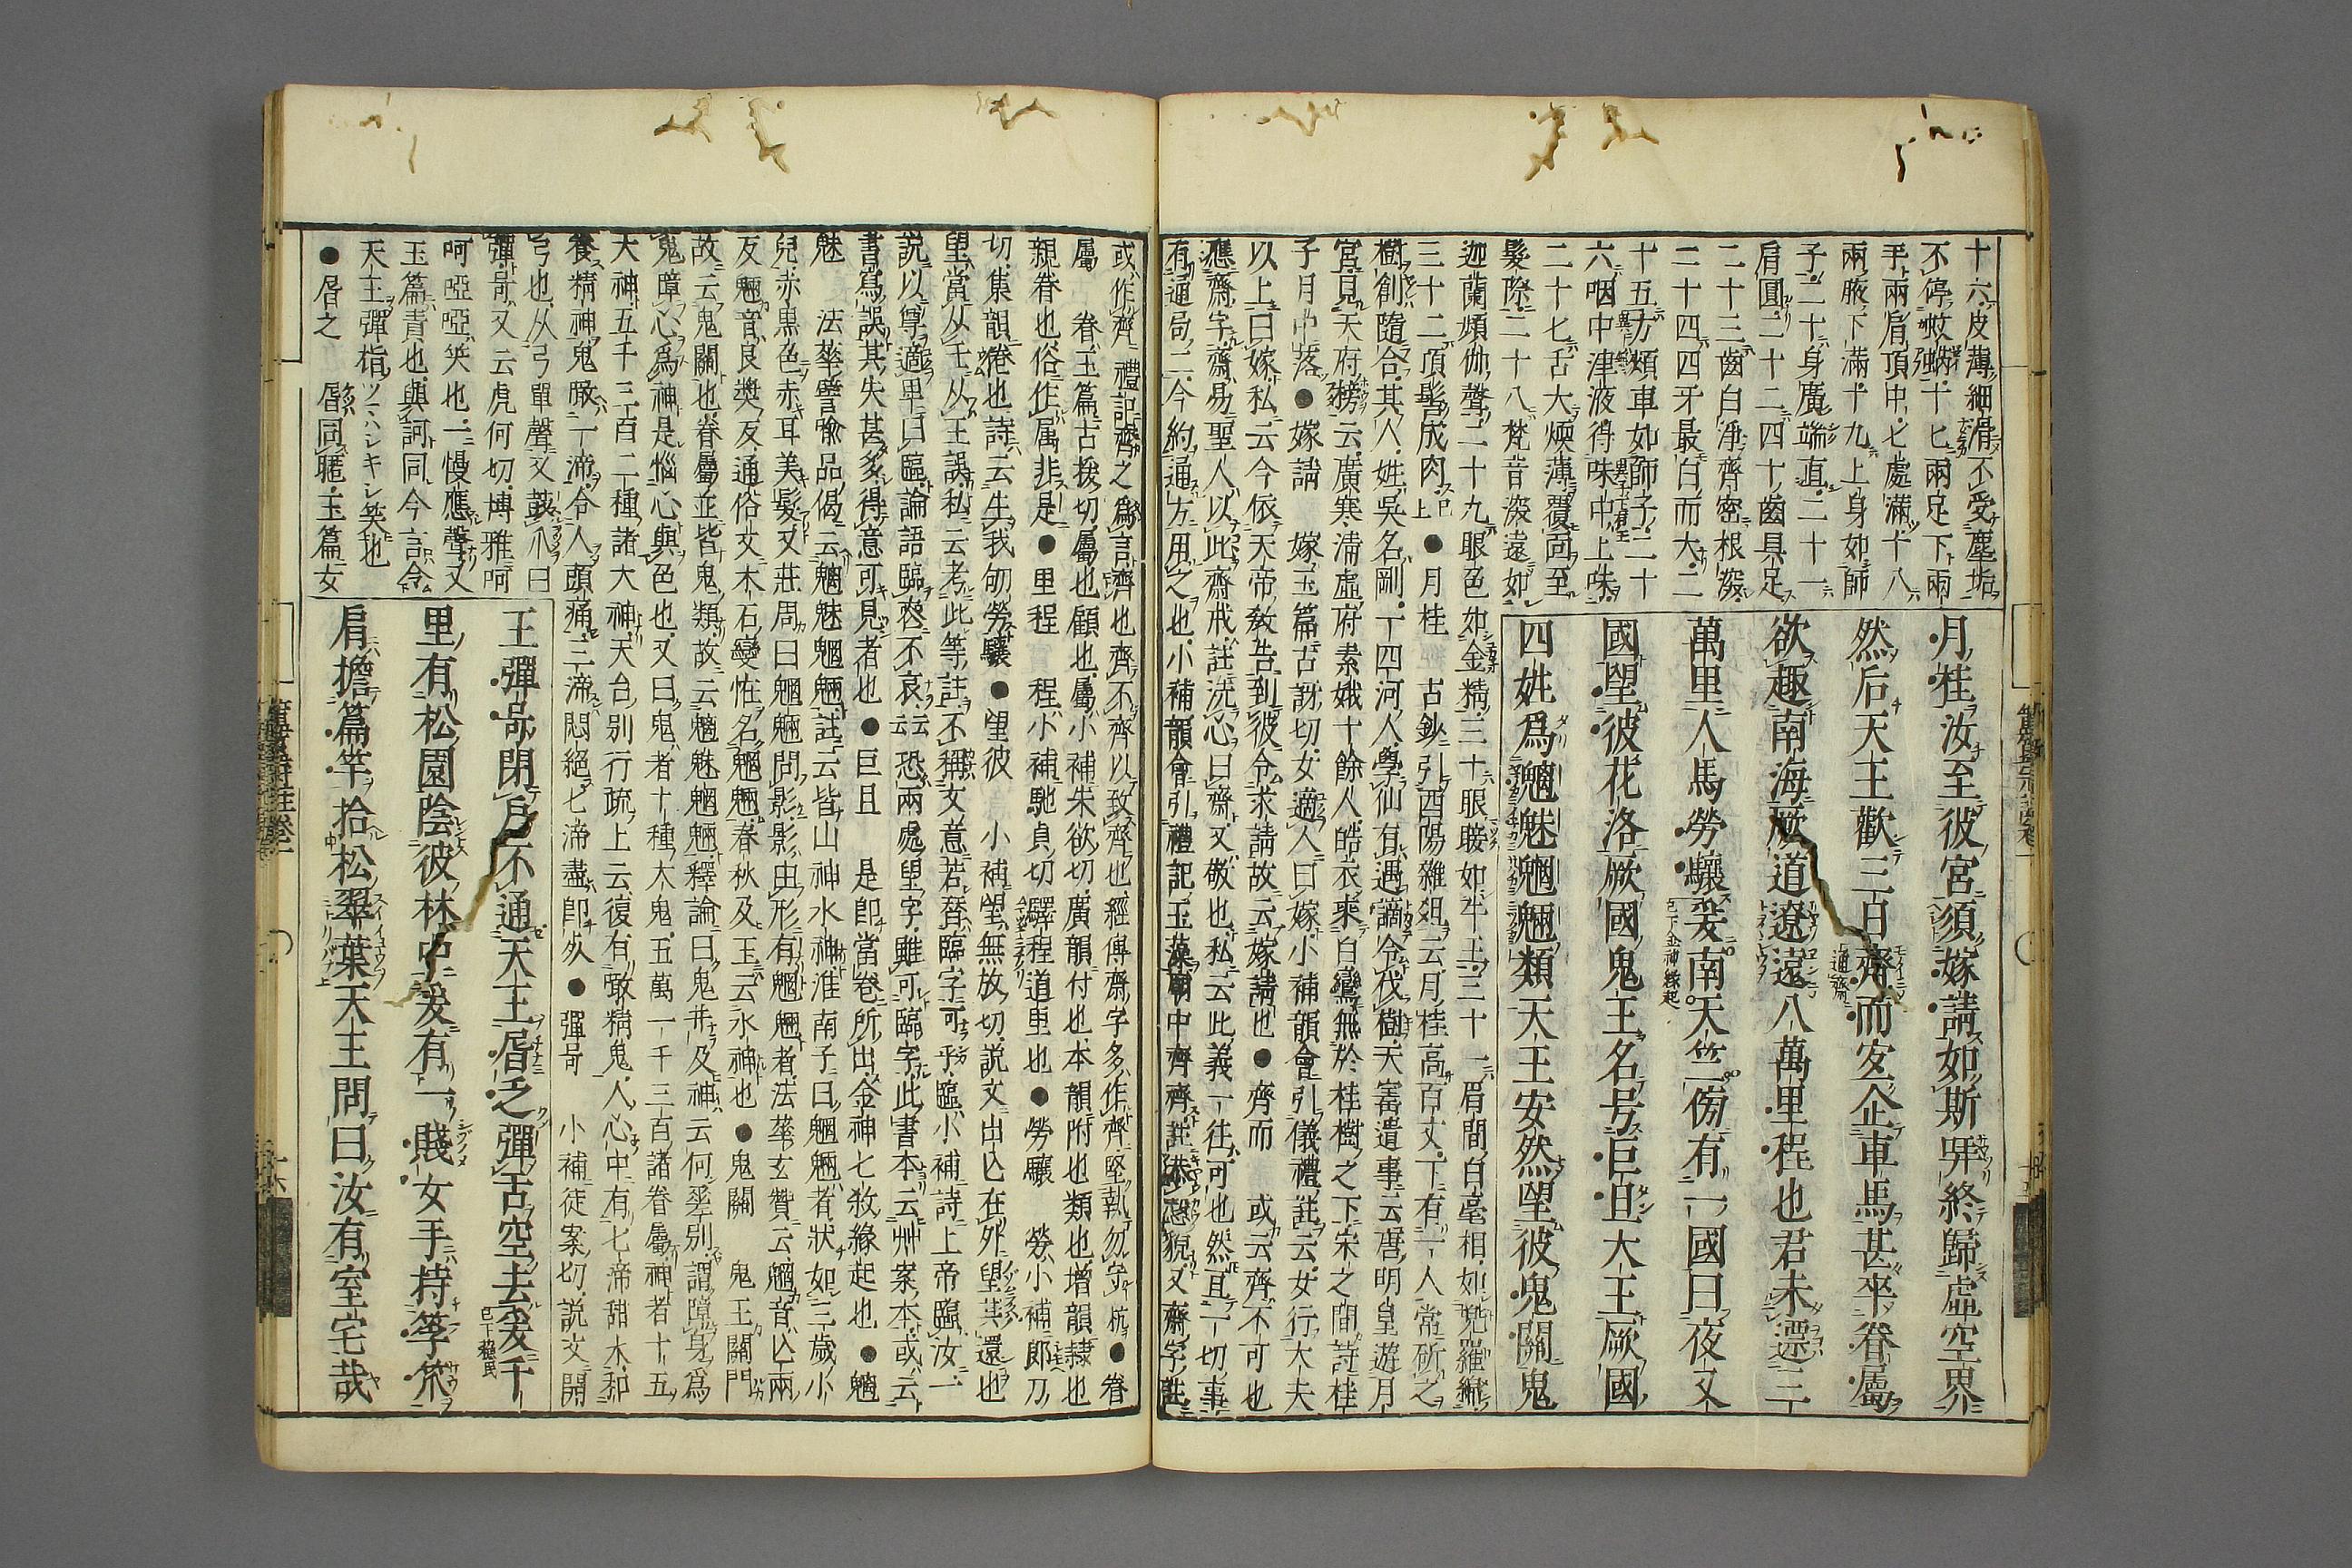 十六皮薄細滑不受塵垢
不停蚊蚋十七兩足下兩
手兩肩頂中七處滿十八
兩腋下滿十九上身如師
子二十身廣端直二十一
肩圓二十二四十齒具足
二十三齒白淨齊密根深
二十四四牙最白而大二
十五方頰車如師子二十
六咽中津液得味中上味
二十七舌大煗薄覆面至
髮際二十八梵音深遠如
月桂汝至彼宮須嫁請如斯 終歸虛空界
然后天王歡三日齊而 企車馬甚卒眷屬
欲趣南海厥道遼遠八萬里程也君未 三
萬里人馬勞驤爰南天竺傍有一國曰夜叉
國望彼花洛厥國鬼王名号巨旦大王厥國
四姓爲魑魅魍魎類天王安然望彼鬼關鬼
迦蘭頻伽聲二十九眼色如金精三十眼睫如牛王三十一眉間白毫相如兜羅綿
三十二頂髻成肉 已上 ●月桂 古鈔引酉陽雜俎云月桂高百丈下有一人常斫之
樹創隨合其人姓吳名剛 西河人學仙有過謫令伐樹天寶遺事云唐明皇遊月
宮見天府榜云廣寒淸虛府素娥十餘人皓衣乘白鸞 於桂樹之下宋之問詩桂
子月中落●嫁請 嫁玉篇古訝切女適人曰嫁小補韻會引儀禮註云女行大夫
以上曰嫁私云今依天帝敎吿到彼令求請故云嫁請也●齊而 或云齊不可也
應齋字齋易聖人以此齋戒註洗心曰齋又敬也私云此義一往可也然且一切事
有通局二今約通方用之也小補韻會引禮記玉藻 中齊齊註恭慤貌又齋字註
或作齊禮記齊之爲言齊也齊不齊以致齊也經傳齋字多作齊堅執勿守 ●眷
屬 眷玉篇古援切屬也顧也屬小補朱欲切廣韻付也本韻附也類也增韻隷也
親眷也俗作属非是●里程 程小補馳貞切驛程道里也●勞驤 勞小補郎刀
切集韻倦也詩云生我劬勞驤●望彼 小補望無放切說文出亡在外望其還也
望當从壬从王誤私云考此等註不稱文意若 臨字可乎臨小補詩上帝臨汝一
說以尊適卑曰臨論語臨喪不哀云云恐兩處望字雖可臨字此書本云艸案本或云
書寫誤其失甚多得意可見者也●巨旦 是卽當卷所出金神七殺緣起也●魑
魅 法華譬喩品偈云魑魅魍魎註云皆山神水神淮南子曰魍魎者狀如三歲小
兒赤黑色赤耳美髮又莊周曰魍魎問影影由形有魍魎者法華玄贊云魍音亡兩
反魎音良奬反通俗文木石變怪名魍魎春秋及玉云水神也●鬼關 鬼王關門
故云鬼關也眷屬並皆鬼類故云魑魅魍魎釋論曰鬼幷及神云何差別謂障身爲
鬼障心爲神是惱心與色也又曰鬼者十種大鬼五萬一千三百諸眷屬神者十五
大神五千三百二種諸大神天台別行疏上云復有 精鬼人心中有七滴甜水和
養精神鬼 一滴令人頭痛三滴悶絕七滴盡卽死●彈哥 小補徒案切說文開
弓也从弓單聲又鼓爪曰
彈哥又云虎何切博雅呵
呵啞啞笑也一慢應聲又
玉篇責也與訶同今言
天王彈指 笑也
●㞐之 㞐同 玉篇女
王彈哥閉戶不通天王㞐之彈舌空去爰千
里有松園陰彼林中爰有一賤女手持
肩擔 竿拾松翠葉天王問曰汝有室宅哉